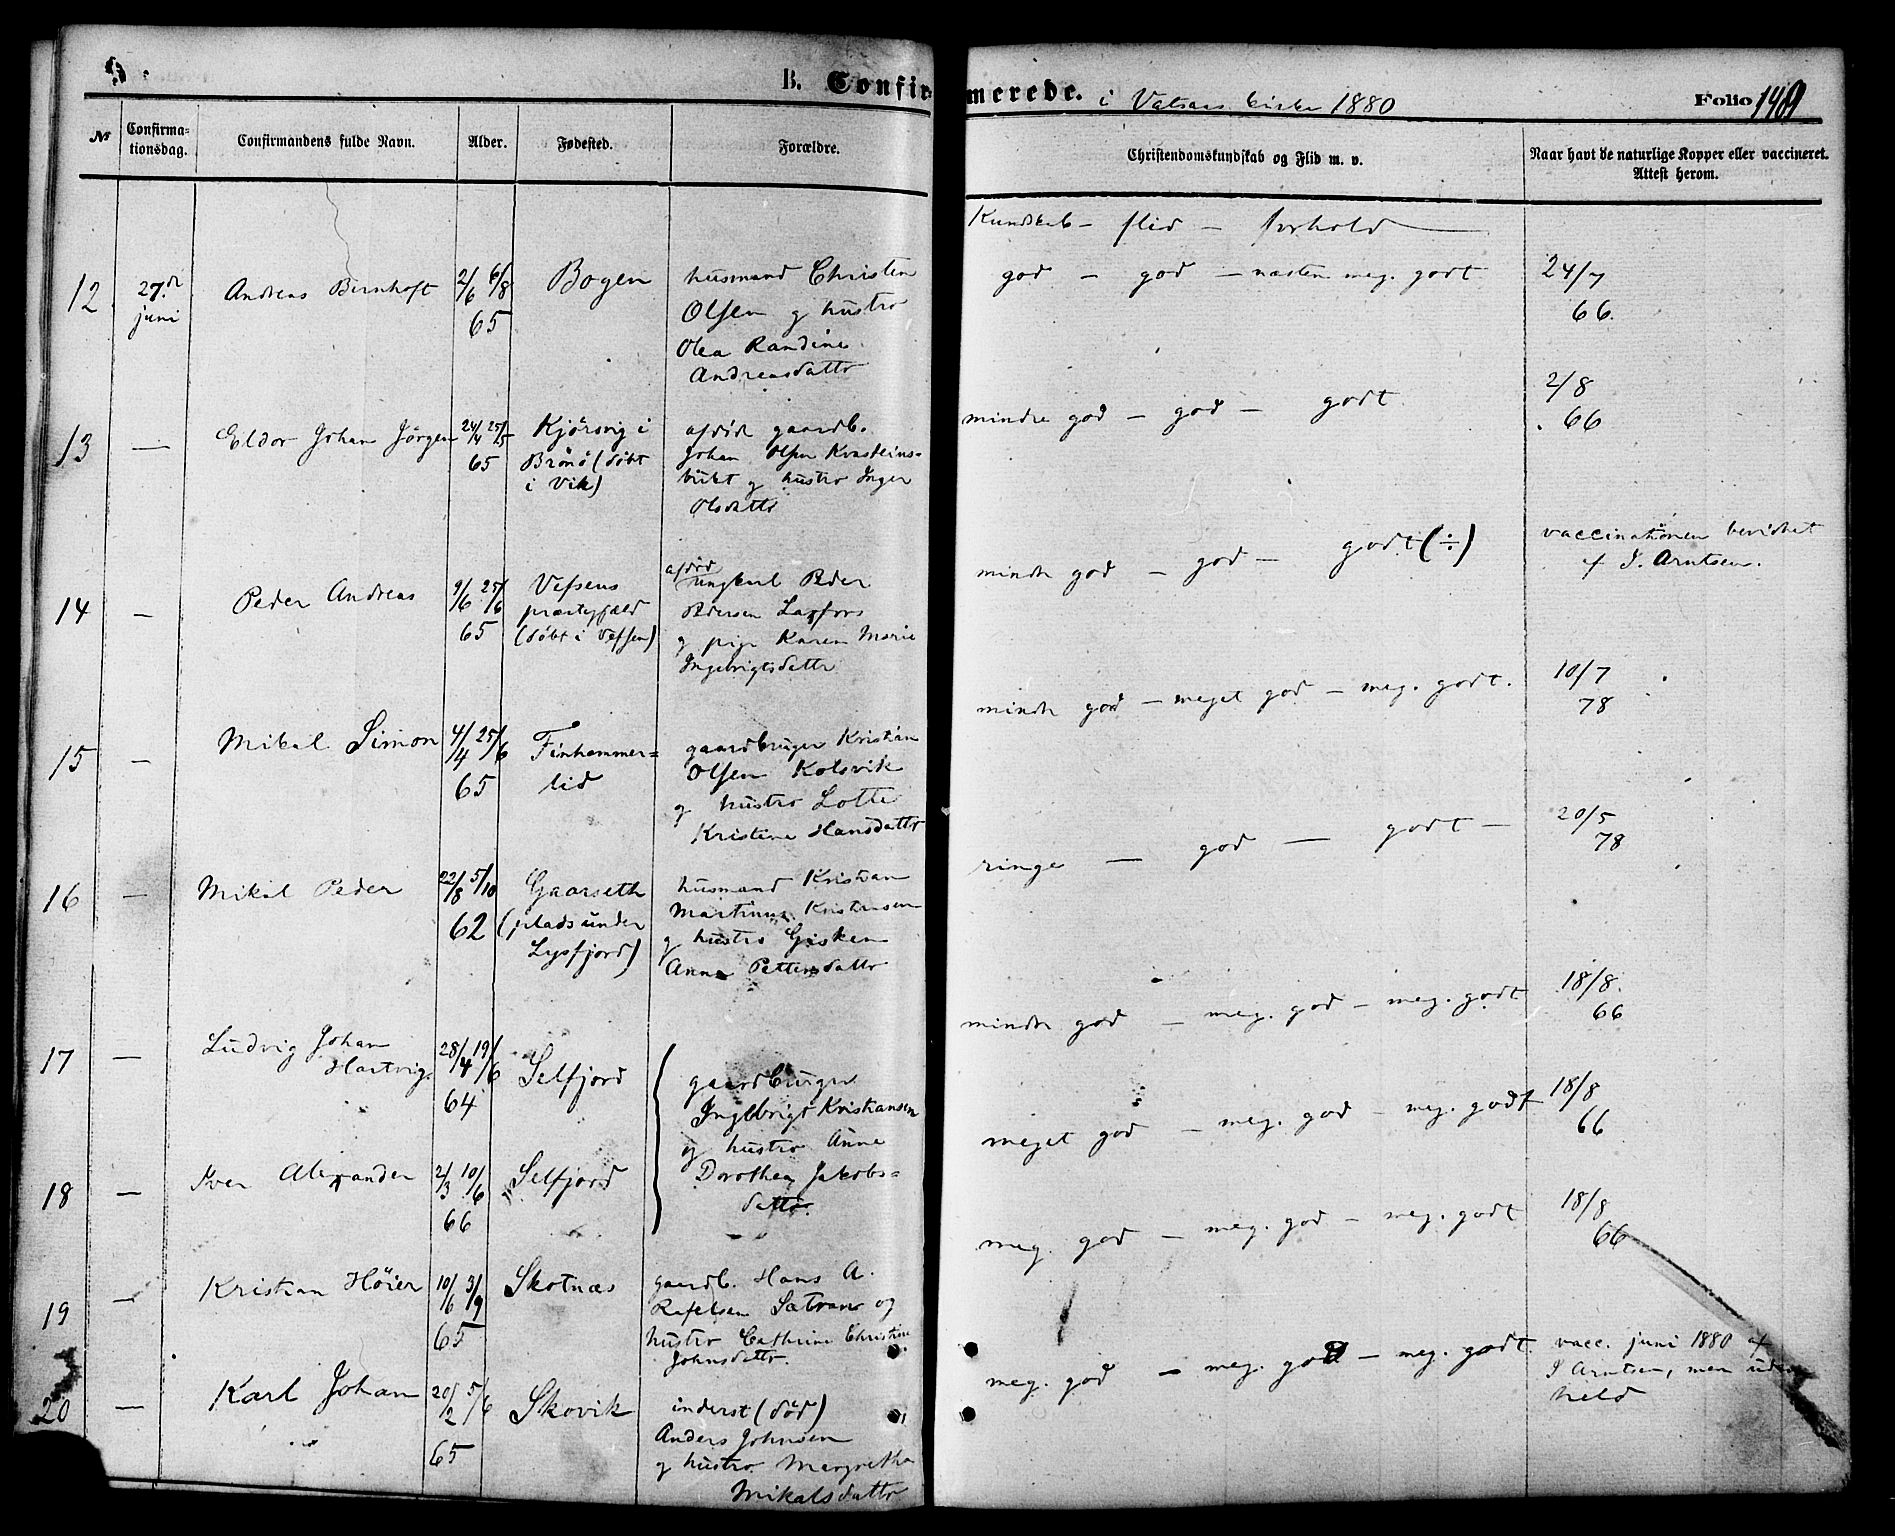 B. Confirmerede. i Vatsaas kirke 1880 Folio 149
No
Confirmationsdag.
Confirmandens fulde Navn.
Alder.
Fødested.
Forældre.
Christendomskundskab og Flid m. v.
Naar havt de naturlige Kopper eller vaccineret.
Attest herom.
Kundskab – flid – forhold
12
27.de
juni
Andreas Bernhoft
2/6 6/8
65
Bogen
husmand Christen
Olsen og hustro
Olea Randine
Andreasdattr
god – god – næsten meg. godt
24/7
66.
13 —
Eldor Johan Jörgen
24/4 25/5
65
Kjörsvig i
Brönö (döbt
i Vik)
afdöd gaardb.
Johan Olsen Kvasteins=
bukt og hustro Inger
Olsdattr
mindre god – god – godt
2/8
66
14 —
Peder Andreas
9/6 25/6
65
Vefsens
præstegjæld
(döbt i Vefsen)
afdöd
ungkarl Peder
Pedersen Laxfors
og pige Karen Marie
Ingebrigtsdattr
mindre god – god – godt (÷)
vaccinationen bevidnet
af I. Arntsen.
15 —
Mikal Simon
4/4 25/6
65
Finhammer=
lid
gaardbruger Kristian
Olsen Kolsvik
og hustro Lotte
Kristine Hansdattr
mindre god – meget god – meg. godt.
10/7
78
16 —
Mikal Peder
22/8 5/10
62
Gaarseth
(plads under
Lysfjord)
husmand Kristian
Martinus Kristensen
og hustro Gisken
Anna Pettersdattr
ringe – god – godt –
20/5
78
17 —
Ludvig Johan
Hartvig
28/4 19/6
64
Selfjord
gaardbruger
Ingebrigt Kristiansen
og hustro Anne
Dorothea Jakobs=
dattr.
mindre god – meg. god – meg. godt
18/8
66
18 —
Iver Alexander
2/3 10/6
66
Selfjord
meget god – meg. god – meg. godt
18/8
66
19 —
Kristian Höier
10/6 3/9
65
Skotnæs
gaardb. Hans A.
Rafelsen Sætran og
hustro Cathrine Christine
Johnsdattr.
meg. god – meg. god – meg. godt
18/8
66
20 —
Karl Johan
20/2 5/6
65
Skovik
inderst (död)
Anders Johnsen
og hustro Margretha
Mikalsdattr
meg. god – meg. god – meg. godt.
vacc. juni 1880 af
I Arntsen, men uden
held